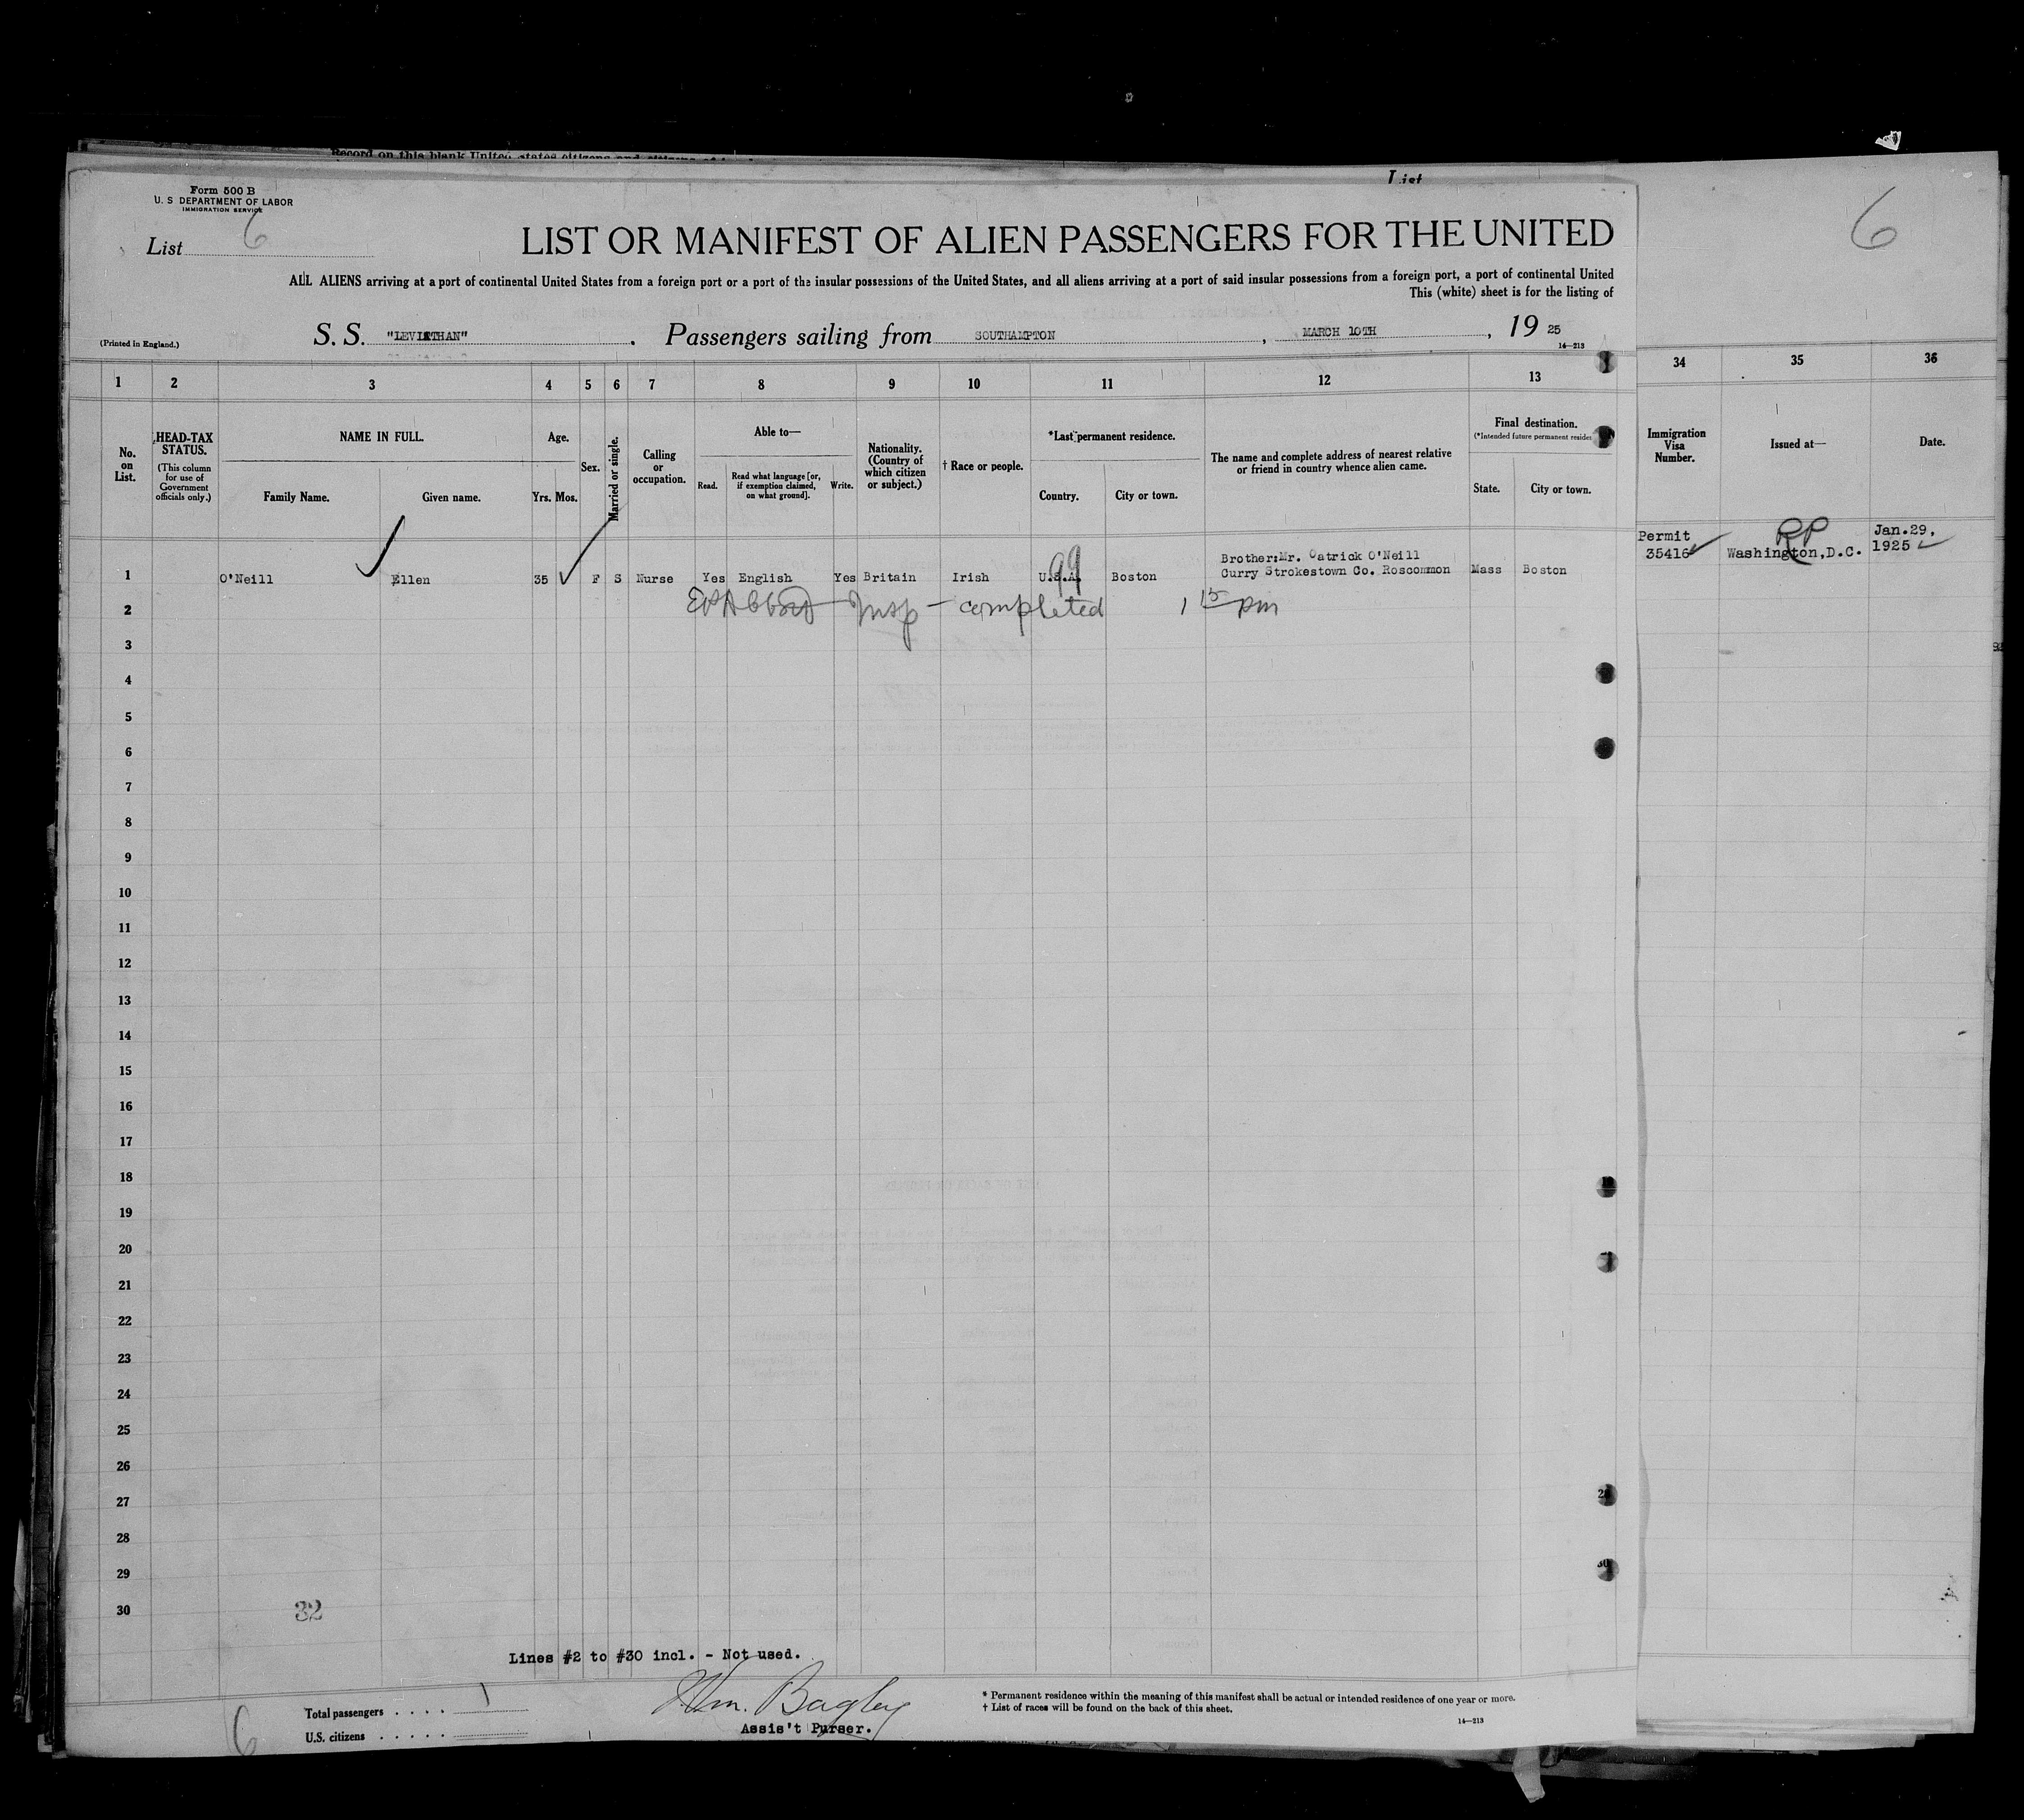 Record on this blank United states citizens and citizens of
List
Form 500 B
U. S DEPARTMENT OF LABOR
IMMIGRATION SERVICE
List 6
6
LIST OR MANIFEST OF ALIEN PASSENGERS FOR THE UNITED
ALL ALIENS arriving at a port of continental United States from a foreign port or a port of the insular possessions of the United States, and all aliens arriving at a port of said insular possessions from a foreign port, a port of continental United
This (white) sheet is for the listing of
(Printed in England.)
S. S. "LEVIATHAN" . Passengers sailing from SOUTHAMPTON , MARCH 10TH , 19 25
14—213
1 2 3 4 5 6 7 8 9 10 11 12 13 34 35 36
No. on List.
HEAD-TAX STATUS.
(This column for use of Government officials only.)
NAME IN FULL.
Family Name. Given name.
Age.
Yrs. Mos.
Sex.
Married or single.
Calling or occupation.
Able to—
Read. Read what language [or, if exemption claimed, on what ground]. Write.
Nationality. (Country of which citizen or subject.)
† Race or people.
*Last permanent residence.
Country. City or town.
The name and complete address of nearest relative or friend in country whence alien came.
Final destination.
(*Intended future permanent residen
State. City or town.
Immigration Visa Number.
Issued at—
Date.
99
Brother:Mr. Oatrick O'Neill
1 O'Neill Ellen 35 F S Nurse Yes English Yes Britain Irish U.S.A. Boston Curry Strokestown Co. Roscommon Mass Boston
Permit 35416
RP
Washington,D.C.
Jan.29, 1925
2 Insp — completed 1 15 pm
3
4
5
6
7
8
9
10
11
12
13
14
15
16
17
18
19
20
21
22
23
24
25
26
27
28
29
30
32
Lines #2 to #30 incl. - Not used.
6
Total passengers . . . . 1
U.S. citizens . . . . .
Wm. Bagley
Assis't Purser.
* Permanent residence within the meaning of this manifest shall be actual or intended residence of one year or more.
† List of races will be found on the back of this sheet.
14—213